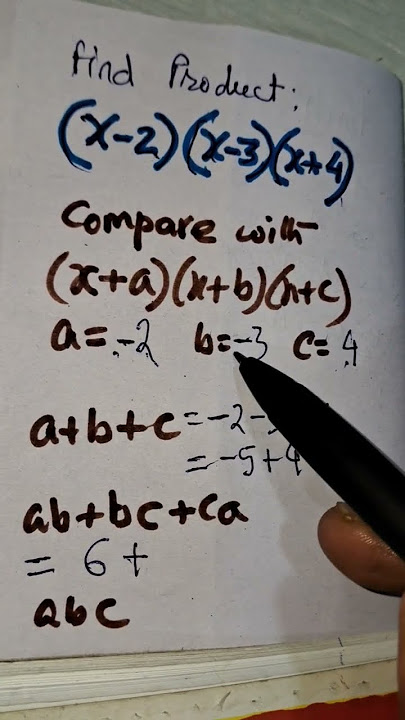 find Product:
(x-2)(x-3)(x+4)
Compare with
(x+a)(x+b)(x+c)
a=-2 b=-3 c=4
a+b+c=-2-
=-5+4
ab+bc+ca
= 6 +
abc